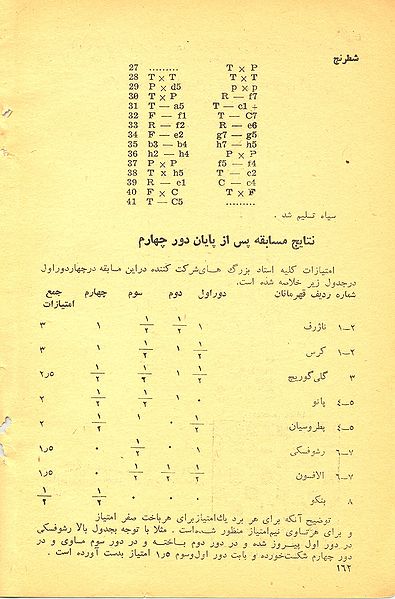 شطرنج
27 ......... T × P
28 T × T T × T
29 P × d5 p × p
30 T × P R — f7
31 T — a5 T — c1 +
32 F — f1 T — C7
33 R — f2 R — e6
34 F — e2 g7 — g5
35 b3 — b4 h7 — h5
36 h2 — h4 P × P
37 P × P f5 — f4
38 T × h5 T — c2
39 R — e1 C — c4
40 F × C T × F
41 T — C5 .........
سیاه تسلیم شد .
نتایج مسابقه پس از پایان دور چهارم
امتیازات کلیه استاد بزرگ های شرکت کننده دراین مسابقه درچهاردوراول
درجدول زیر خلاصه شده است.
شماره ردیف قهرمانان دوراول دوم سوم چهارم جمع امتیازات
۱—۲ ناژرف ۱ ۱/۲ ۱/۲ ۱ ۳
۱—۲ کرس ۱/۲ ۱ ۱/۲ ۱ ۳
۳ گلی‌گوریچ ۱/۲ ۱ ۱/۲ ۱/۲ ۲٫۵
۴—۵ پانو ۱/۲ ۱/۲ ۱ ۰ ۲
۴—۵ پطروسیان ۱/۲ ۰ ۱ ۱/۲ ۲
۶—۷ رشوفسکی ۱ ۰ ۱/۲ ۰ ۱٫۵
۶—۷ الافون ۱/۲ ۱/۲ ۱/۲ ۰ ۱٫۵
۸ بنکو ۰ ۰ ۰ ۱/۲ ۱/۲
توضیح آنکه برای هر برد یك‌امتیازبرای هرباخت صفر امتیاز
و برای هرتساوی نیم‌امتیاز منظور شده‌است . مثلا با توجه بجدول بالا رشوفسکی
در دور اول پیروز شده و در دور دوم باخته و در دور سوم مساوی و در
دور چهارم شکست‌خورده و بابت دور اول‌وسوم ۱٫۵ امتیاز بدست آورده است .
۱۶۲